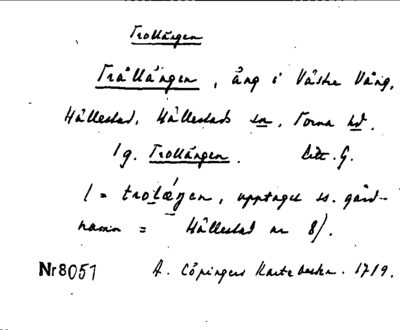 Trollängen
Trållängen, äng i Västra Vång,
Hällestad, Hällestads sn, Torna hd.
1 g. Trollängen. Litt. G.
(= trolängen, upptaget ss. gård-
namn = Hällestad nr 8).
Nr 8051 A. Cöpingers Kartebeskr. 1719.